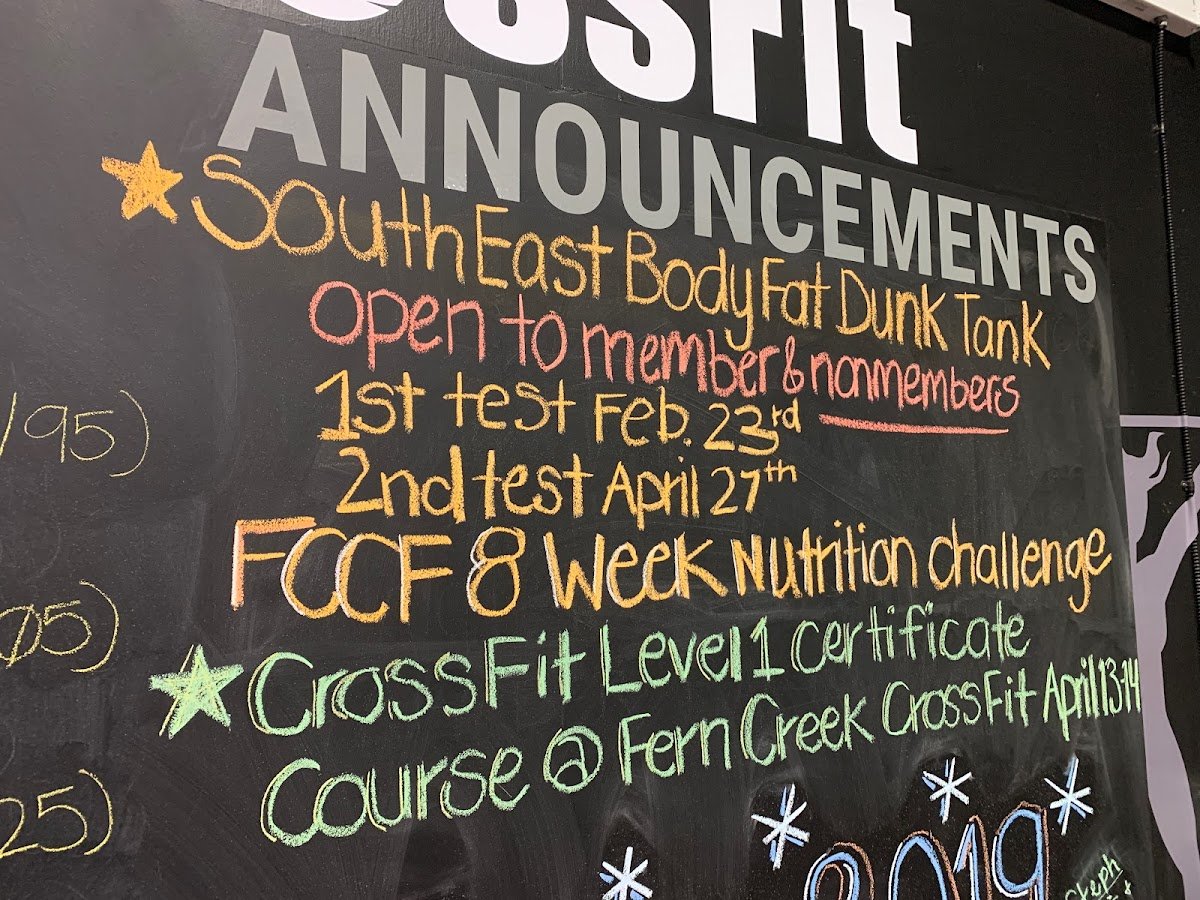 CrossFit
ANNOUNCEMENTS
SouthEast Body Fat Dunk Tank
open to member & nonmembers
1st test Feb. 23rd
2nd test April 27th
FCCF 8 Week Nutrition challenge
CrossFit Level 1 certificate
Course @ Fern Creek CrossFit April 13-14
/95)
05)
25)
2019
Steph